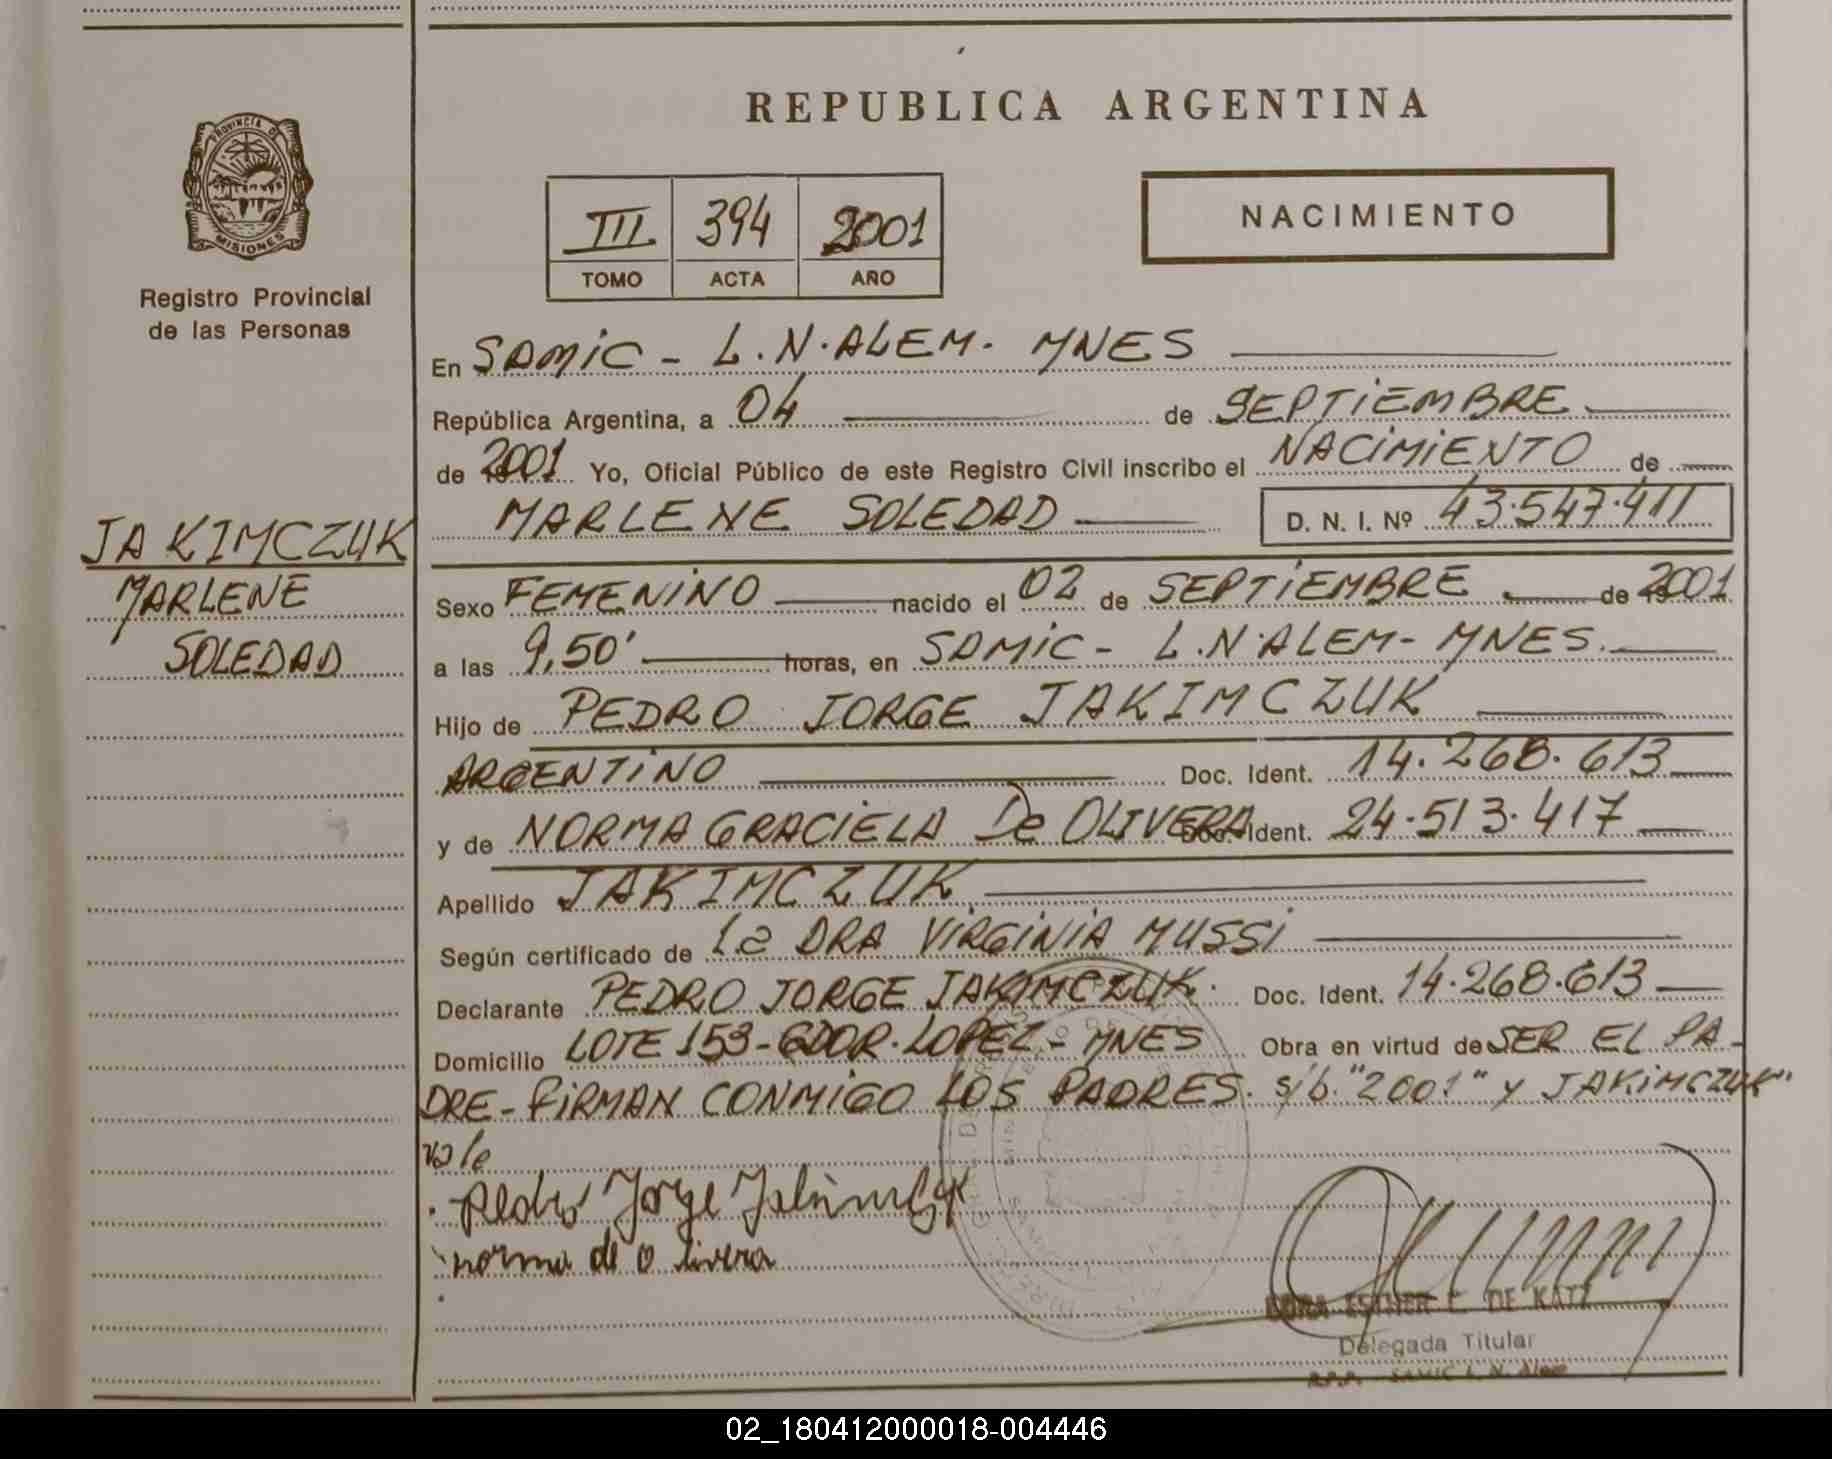 REPUBLICA ARGENTINA
PROVINCIA DE
MISIONES
Registro Provincial
de las Personas
III 394 2001
TOMO ACTA AÑO
NACIMIENTO
En SAMIC - L.N.ALEM- MNES
República Argentina, a 04 de SEPTIEMBRE
de 2001 Yo, Oficial Público de este Registro Civil inscribo el NACIMIENTO de
MARLENE SOLEDAD D. N. I. Nº 43.547.411
JAKIMCZUK
MARLENE
SOLEDAD
Sexo FEMENINO nacido el 02 de SEPTIEMBRE de 2001
a las 9,50' horas, en SAMIC - L.N.ALEM- MNES.
Hijo de PEDRO JORGE JAKIMCZUK
ARGENTINO Doc. Ident. 14.268.613
y de NORMA GRACIELA De OLIVERA Doc. Ident. 24.513.417
Apellido JAKIMCZUK
Según certificado de La DRA VIRGINIA MUSSI
Declarante PEDRO JORGE JAKIMCZUK. Doc. Ident. 14.268.613
Domicilio LOTE 153-GDOR.LOPEZ- MNES Obra en virtud de SER EL PA-
DRE- FIRMAN CONMIGO LOS PADRES. s/b. "2001" y JAKIMCZUK"
vale
Pedro Jorge Jakimczuk
norma de olivera
ESTHER C. DE KATZ
Delegada Titular
R.P.P. SAMIC L. N. Alem
02_180412000018-004446